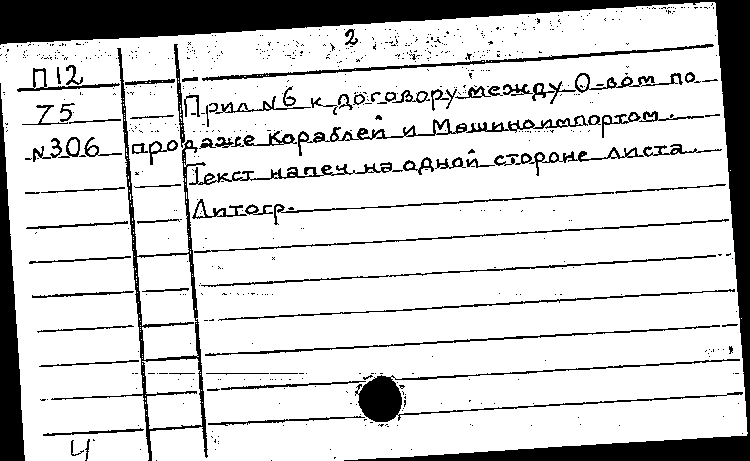 2
П12
75
№306
Прил №6 к договору между О-вом по
продаже кораблей и Машиноимпортом.
Текст напеч. на одной стороне листа.
Литогр.
4